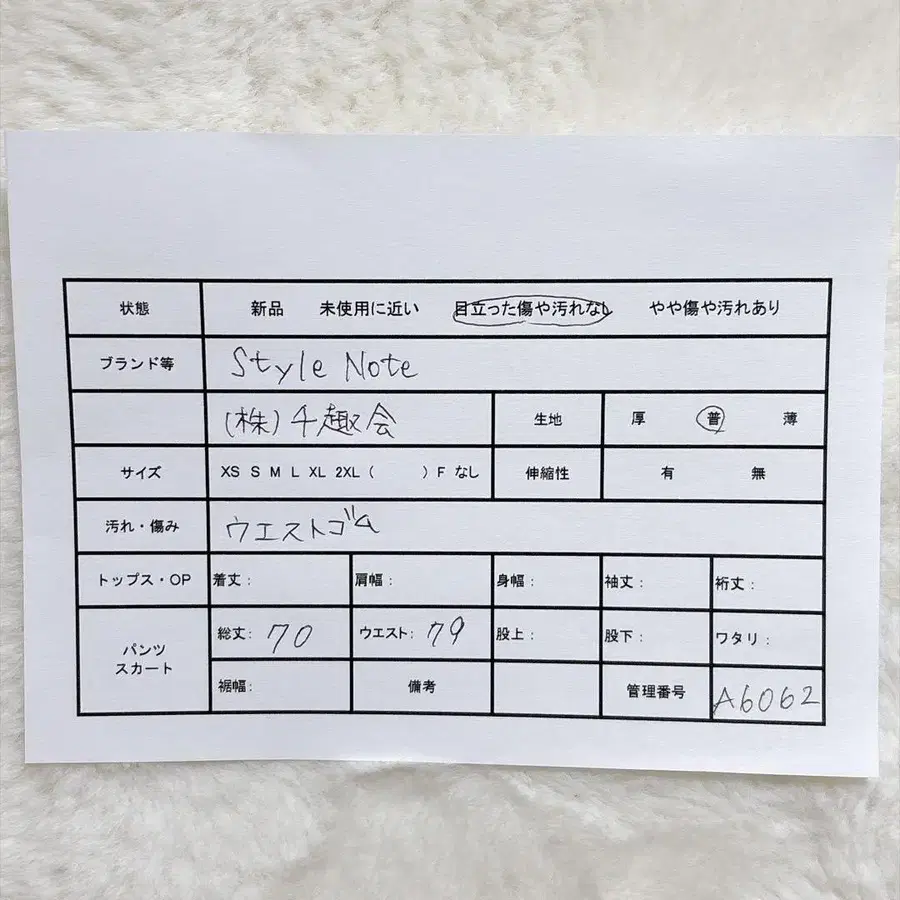 状態 新品 未使用に近い 目立った傷や汚れなし やや傷や汚れあり
ブランド等 Style Note
(株)千趣会 生地 厚 普 薄
サイズ XS S M L XL 2XL ( ) F なし 伸縮性 有 無
汚れ・傷み ウエストゴム
トップス・OP 着丈: 肩幅: 身幅: 袖丈: 裄丈:
パンツ
スカート
総丈: 70 ウエスト: 79 股上: 股下: ワタリ:
裾幅: 備考 管理番号 A6062